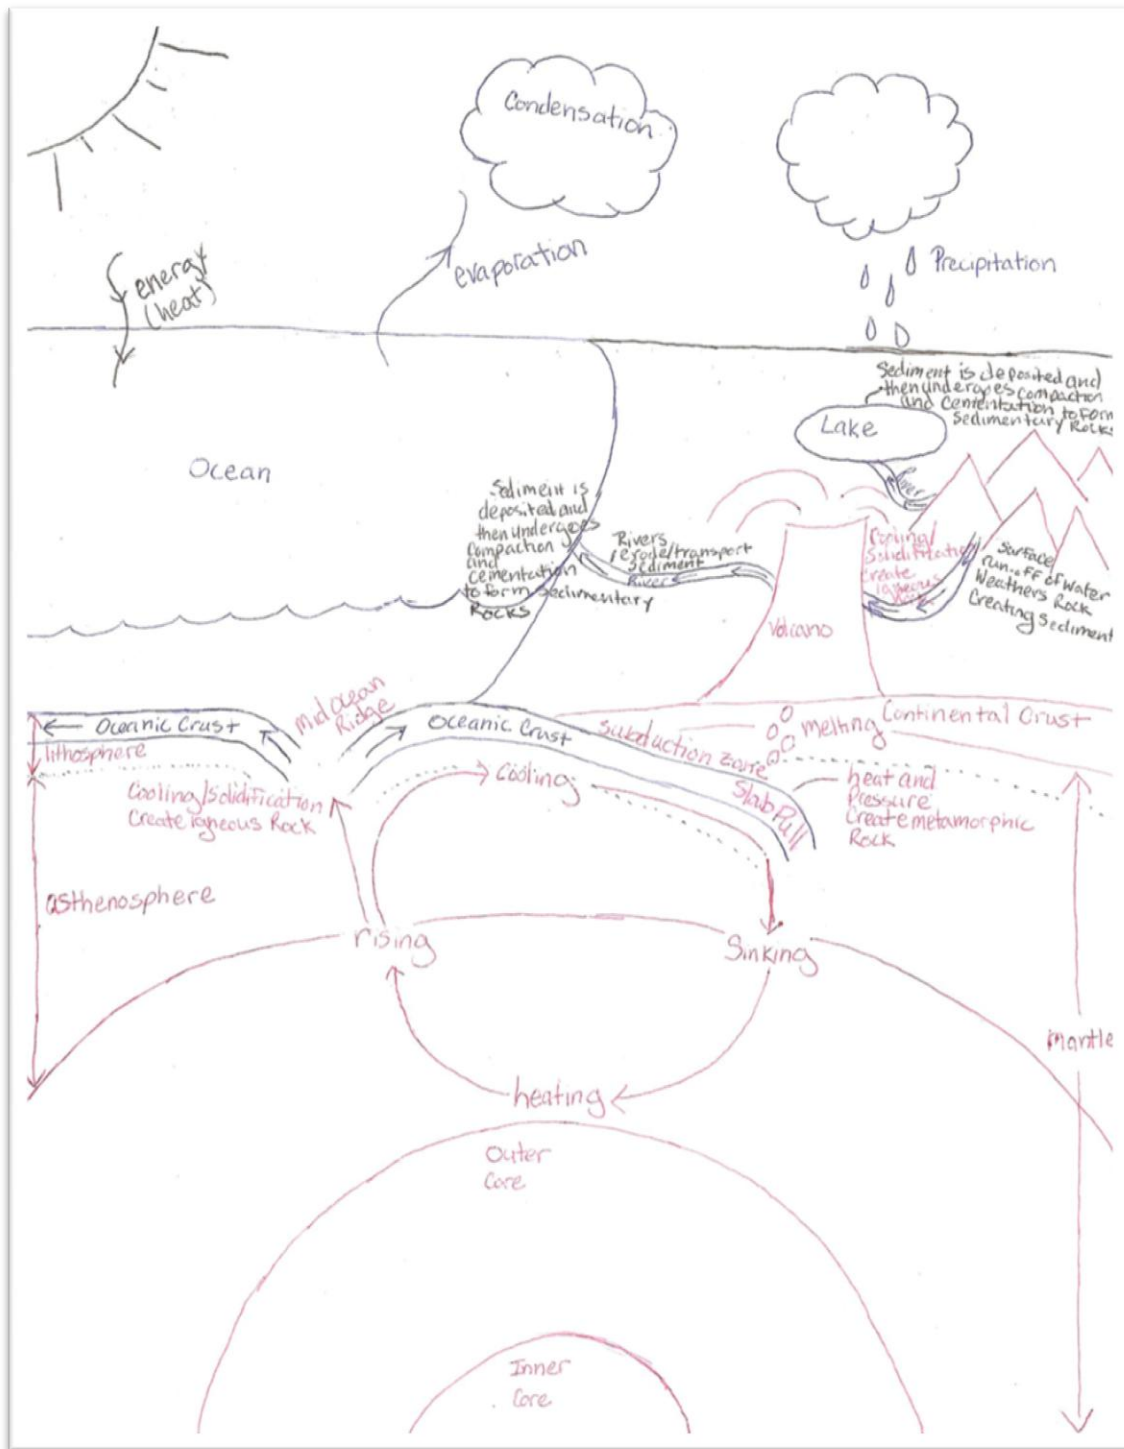 Condensation
energy
(heat)
evaporation
Precipitation
Sediment is deposited and
then undergoes compaction
and Cementation to form
Sedimentary Rocks
Lake
River
Ocean
Sediment is
deposited and
then undergoes
compaction
and
cementation
to form Sedimentary
Rocks
Rivers
erode/transport
Sediment
Rivers
Cooling/
Solidification
Create
igneous
Surface
run-off of Water
Weathers Rock
Creating Sediment
Volcano
Mid Ocean
Ridge
Oceanic Crust
Oceanic Crust
Subduction Zone
melting
Continental Crust
lithosphere
Cooling
Slab Pull
heat and
Pressure
Create metamorphic
Rock
Cooling/Solidification
Create igneous Rock
asthenosphere
rising
Sinking
Mantle
heating
Outer
Core
Inner
Core